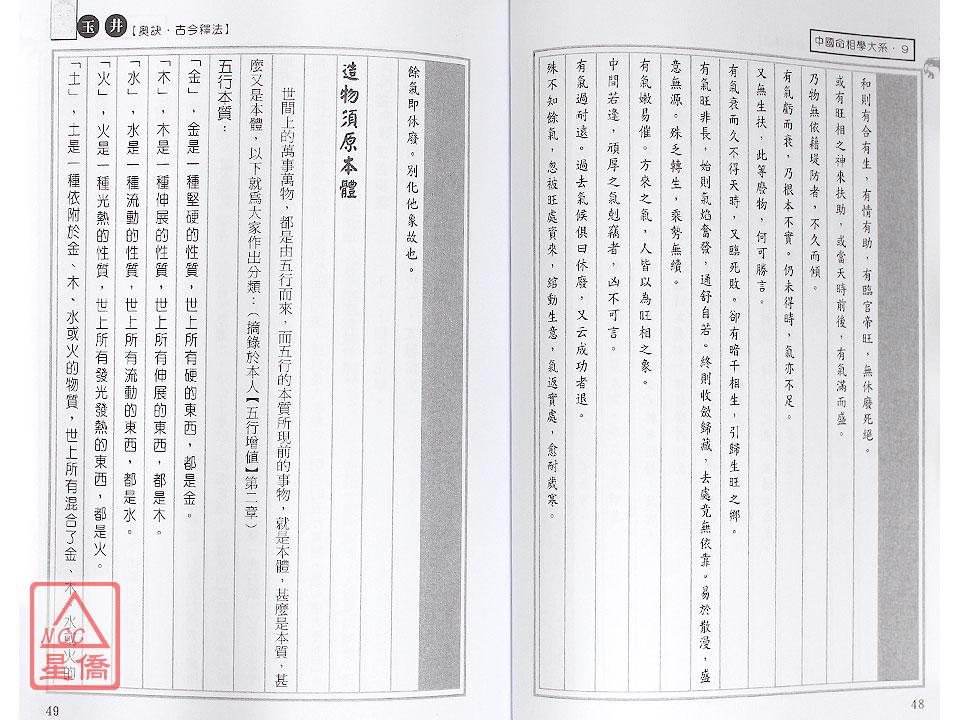 中國命相學大系·9
和則有合有生，有情有助，有臨官帝旺，無休廢死絕。
或有旺相之神來扶助，或當天時前後，有氣滿而盛。
乃物無依藉堤防者，不久而傾。
有氣虧而衰，乃根本不實。仍未得時，氣亦不足。
又無生扶，此等廢物，何可勝言。
有氣衰而久不得天時，又臨死敗。卻有暗干相生，引歸生旺之鄉。
有氣旺非長，始則氣焰奮發，通舒自若。終則收斂歸藏，去處竟無依靠。易於散漫，盛
意無源。殊乏轉生，乘勢無續。
有氣嫩易催。方來之氣，人皆以為旺相之象。
中間若逢，頑厚之氣剋竊者，凶不可言。
有氣過耐遠。過去氣候俱曰休廢，又云成功者退。
殊不知餘氣，忽被旺處資來，綰動生意，氣返實處，愈耐歲寒。
48
玉井【奧訣·古今釋法】
餘氣即休廢。別化他象故也。
造物須原本體
世間上的萬事萬物，都是由五行而來，而五行的本質所現前的事物，就是本體，甚麼是本質，甚
麼又是本體，以下就為大家作出分類：（摘錄於本人【五行增值】第二章）
五行本質：
「金」，金是一種堅硬的性質，世上所有硬的東西，都是金。
「木」，木是一種伸展的性質，世上所有伸展的東西，都是木。
「水」，水是一種流動的性質，世上所有流動的東西，都是水。
「火」，火是一種光熱的性質，世上所有發光發熱的東西，都是火。
「土」，土是一種依附於金、木、水或火的物質，世上所有混合了金、木、水或火的
49
NCC
星僑